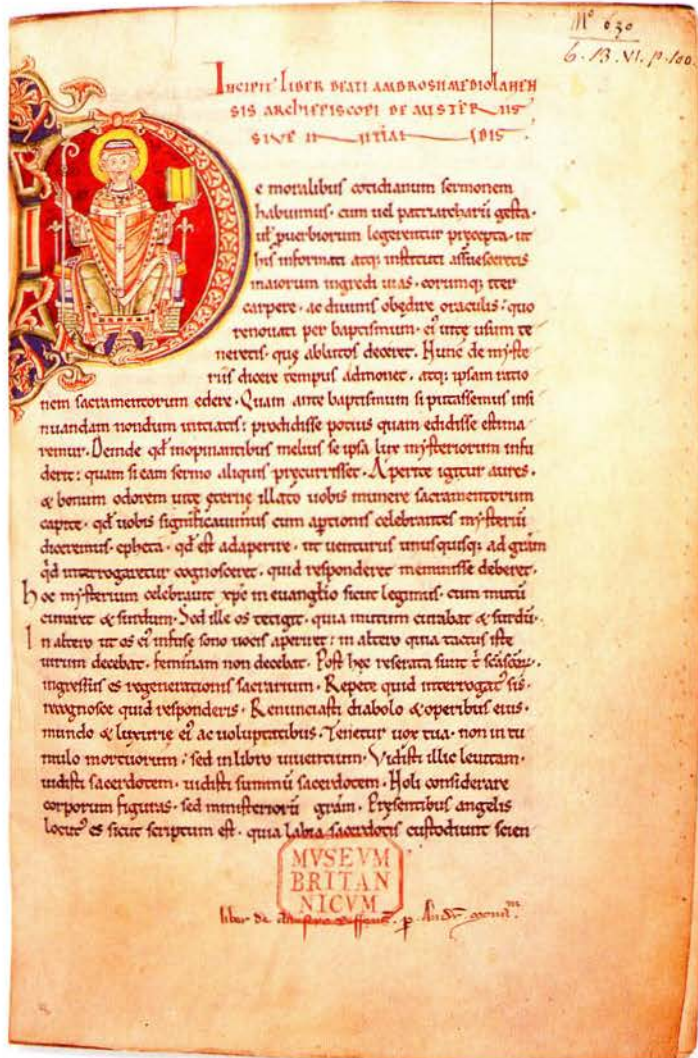 Mº 630
6. B. VI. p. 100.
INCIPIT LIBER BEATI AMBROSII MEDIOLANEN
SIS ARCHIEPISCOPI DE MISTERIIS
SIVE INITIANDIS
e moralibus cotidianum sermonem
habuimus. cum uel patriarcharū gesta.
ut puerbiorum legerentur precepta. ut
his informati atq; instituti assuesceretis
maiorum ingredi uias. eorumq; iter
carpere. ac diuinis obedire oraculis: quo
renouati per baptismum. ei uite usum te
neretis. que ablutos deceret. Nunc de myste
riis dicere tempus admonet. atq; ipsam ratio
nem sacramentorum edere. Quam ante baptismum si putassemus insi
nuandam nondum initiatis: prodidisse potius quam edidisse estima
remur. Deinde qd inopinantibus melius se ipsa lux mysteriorum infu
derit: quam si eam sermo aliquis precurrisset. Aperite igitur aures.
& bonum odorem uite eterne illato uobis munere sacramentorum
capite. qd uobis significauimus cum aptionis celebrantes mysteriū
diceremus. epheta. qd est adaperire. ut uenturus unusquisq; ad grām
qd interrogaretur cognosceret. quid responderet meminisse deberet.
hoc mysterium celebrauit xpc in euanglio sicut legimus. cum mutū
curaret & surdum. Sed ille os tetigit. quia mutum curabat & surdū.
In altero ut os ei infuse sono uocis aperiret: in altero quia tactus iste
uirum decebat. feminam non decebat. Post hec reserata sunt t scāscōꝝ.
ingressus es regenerationis sacrarium. Repete quid interrogat sis.
recognosce quid responderis. Renunciasti diabolo & operibus eius.
mundo & luxurie ei ac uoluptatibus. Tenetur uox tua. non in tu
mulo mortuorum: sed in libro uiuentium. Vidisti illic leuitam.
uidisti sacerdotem. uidisti summū sacerdotem. Noli considerare
corporum figuras. sed ministeriorū grām. Presentibus angelis
locut es sicut scriptum est. quia labia sacerdotis custodiunt scien
MVSEVM
BRITAN
NICVM
liber de claustro Roffens. p Andr monm